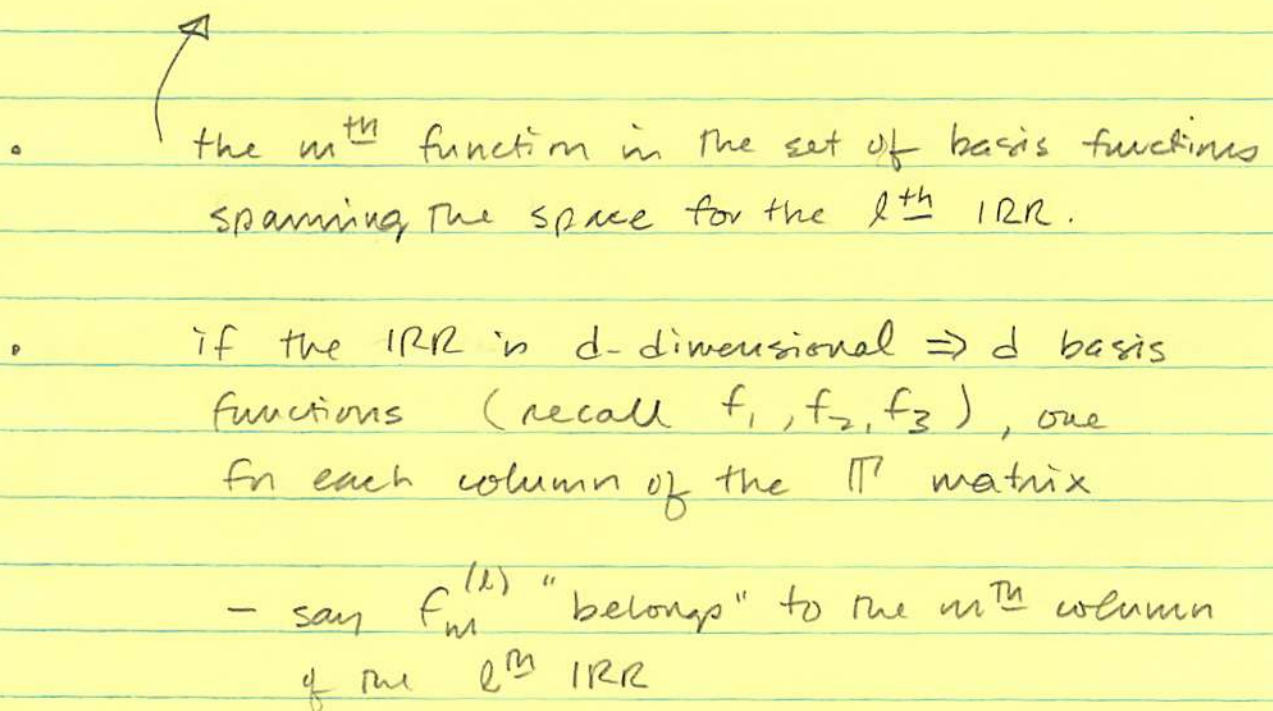 • the mth function in the set of basis functions
spanning the space for the lth IRR.
• if the IRR is d-dimensional ⇒ d basis
functions (recall f₁, f₂, f₃), one
for each column of the Γ matrix
- say fₘ⁽ˡ⁾ "belongs" to the mth column
of the lth IRR